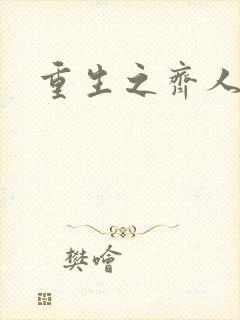 重生之齐人
樊噲